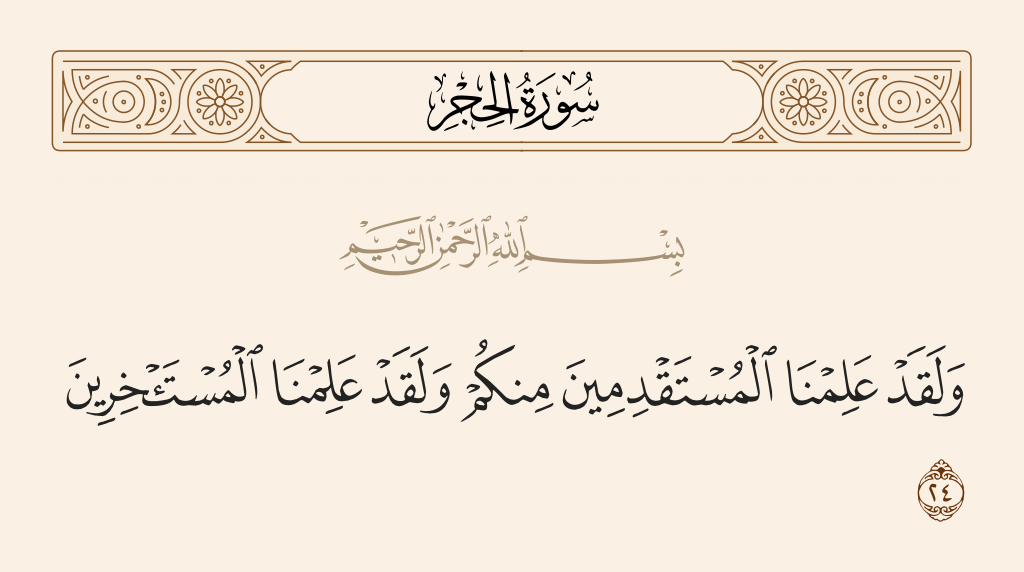 سُورَةُ الحِجْرِ
بِسْمِ ٱللَّهِ ٱلرَّحْمَٰنِ ٱلرَّحِيمِ
وَلَقَدْ عَلِمْنَا ٱلْمُسْتَقْدِمِينَ مِنكُمْ وَلَقَدْ عَلِمْنَا ٱلْمُسْتَـْٔخِرِينَ
٢٤